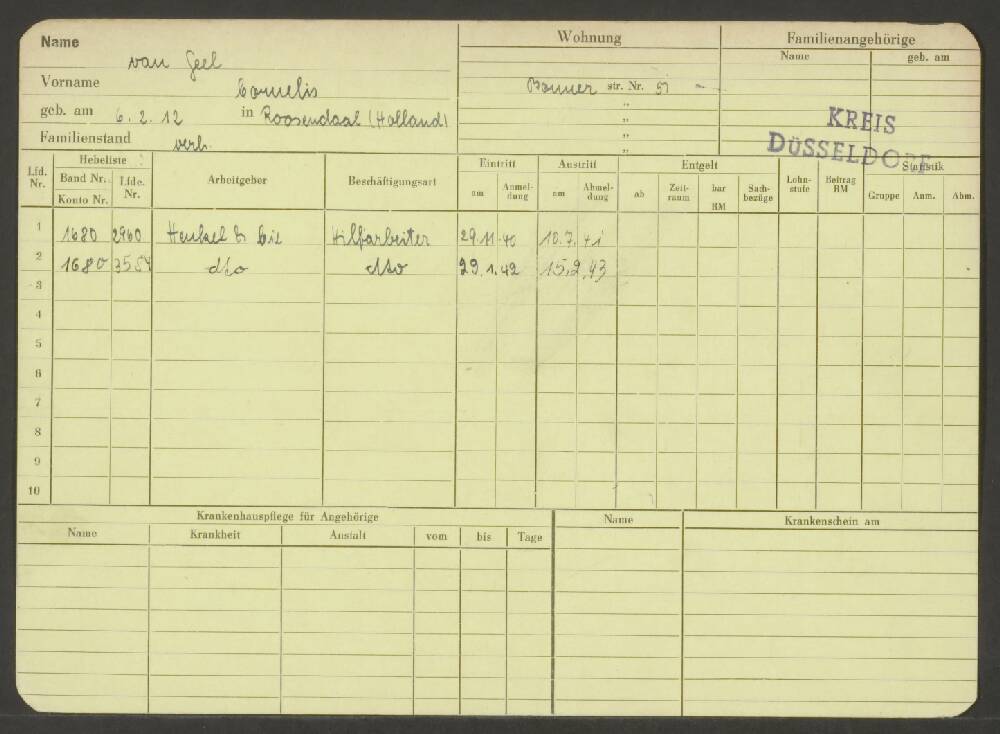 Name van Geel
Vorname Cornelis
geb. am 6.2.12 in Roosendaal (Holland)
Familienstand verh.
Wohnung
Bonner str. Nr. 51
"
"
"
Familienangehörige
Name geb. am
KREIS
DÜSSELDORF
Lfd. Nr. Hebeliste Arbeitgeber Beschäftigungsart Eintritt Austritt Entgelt Lohn-stufe Beitrag RM Statistik
Band Nr. Lfde. Nr. am Anmel-dung am Abmel-dung ab Zeit-raum bar RM Sach-bezüge Gruppe Anm. Abm.
Konto Nr.
1 1680 2960 Henkel & Cie Hilfsarbeiter 29.11.40 10.7.41
2 1680 3554 dto dto 29.1.42 15.2.43
3
4
5
6
7
8
9
10
Krankenhauspflege für Angehörige
Name Krankheit Anstalt vom bis Tage
Name Krankenschein am